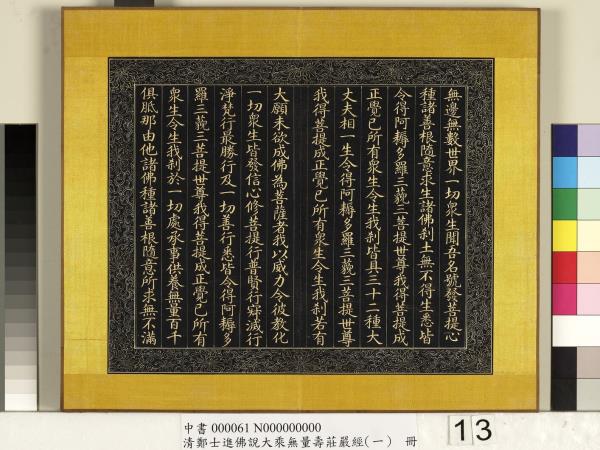 無邊無數世界一切衆生聞吾名號發菩提心
種諸善根隨意求生諸佛刹土無不得生悉皆
令得阿耨多羅三藐三菩提世尊我得菩提成
正覺已所有衆生令生我刹皆具三十二種大
丈夫相一生令得阿耨多羅三藐三菩提世尊
我得菩提成正覺已所有衆生令生我刹若有
大願未欲成佛為菩薩者我以威力令彼教化
一切衆生皆發信心修菩提行普賢行寂滅行
淨梵行最勝行及一切善行悉皆令得阿耨多
羅三藐三菩提世尊我得菩提成正覺已所有
衆生令生我刹於一切處承事供養無量百千
俱胝那由他諸佛種諸善根隨意所求無不滿
中書 000061 N000000000
清鄭士進佛說大乘無量壽莊嚴經(一) 冊
13